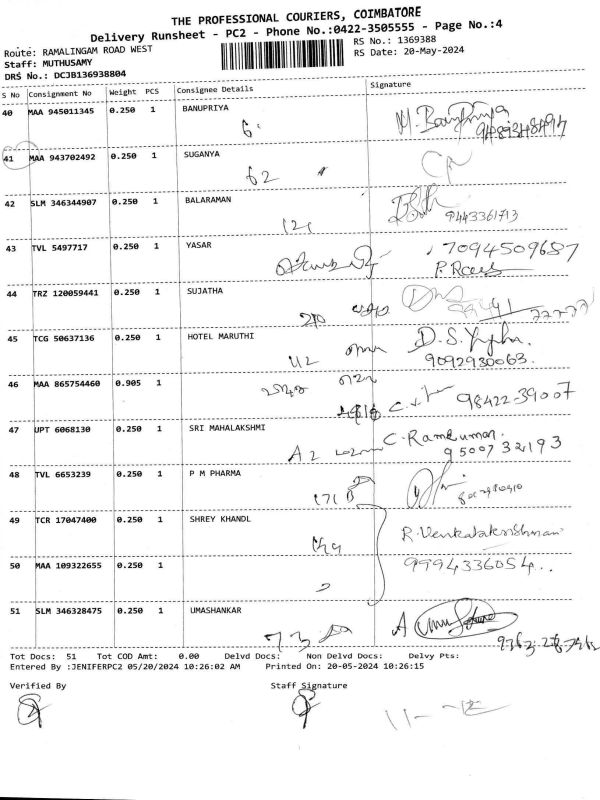 THE PROFESSIONAL COURIERS, COIMBATORE
Delivery Runsheet - PC2 - Phone No.:0422-3505555 - Page No.:4
Route: RAMALINGAM ROAD WEST RS No.: 1369388
Staff: MUTHUSAMY RS Date: 20-May-2024
DRS No.: DCJB136938804
S No Consignment No Weight PCS Consignee Details Signature
40 MAA 945011345 0.250 1 BANUPRIYA
41 MAA 943702492 0.250 1 SUGANYA
62
42 SLM 346344907 0.250 1 BALARAMAN
121 9443361713
43 TVL 5497717 0.250 1 YASAR 7094509687
44 TRZ 120059441 0.250 1 SUJATHA
45 TCG 50637136 0.250 1 HOTEL MARUTHI
9092930063.
46 MAA 865754460 0.905 1
98422-39007
47 UPT 6068130 0.250 1 SRI MAHALAKSHMI C. Ramkumar.
A2 9500732193
48 TVL 6653239 0.250 1 P M PHARMA
171 B
49 TCR 17047400 0.250 1 SHREY KHANDL
R. Venkatakrishnan
50 MAA 109322655 0.250 1 9994336054..
51 SLM 346328475 0.250 1 UMASHANKAR
73
Tot Docs: 51 Tot COD Amt: 0.00 Delvd Docs: Non Delvd Docs: Delvy Pts:
Entered By :JENIFERPC2 05/20/2024 10:26:02 AM Printed On: 20-05-2024 10:26:15
Verified By Staff Signature